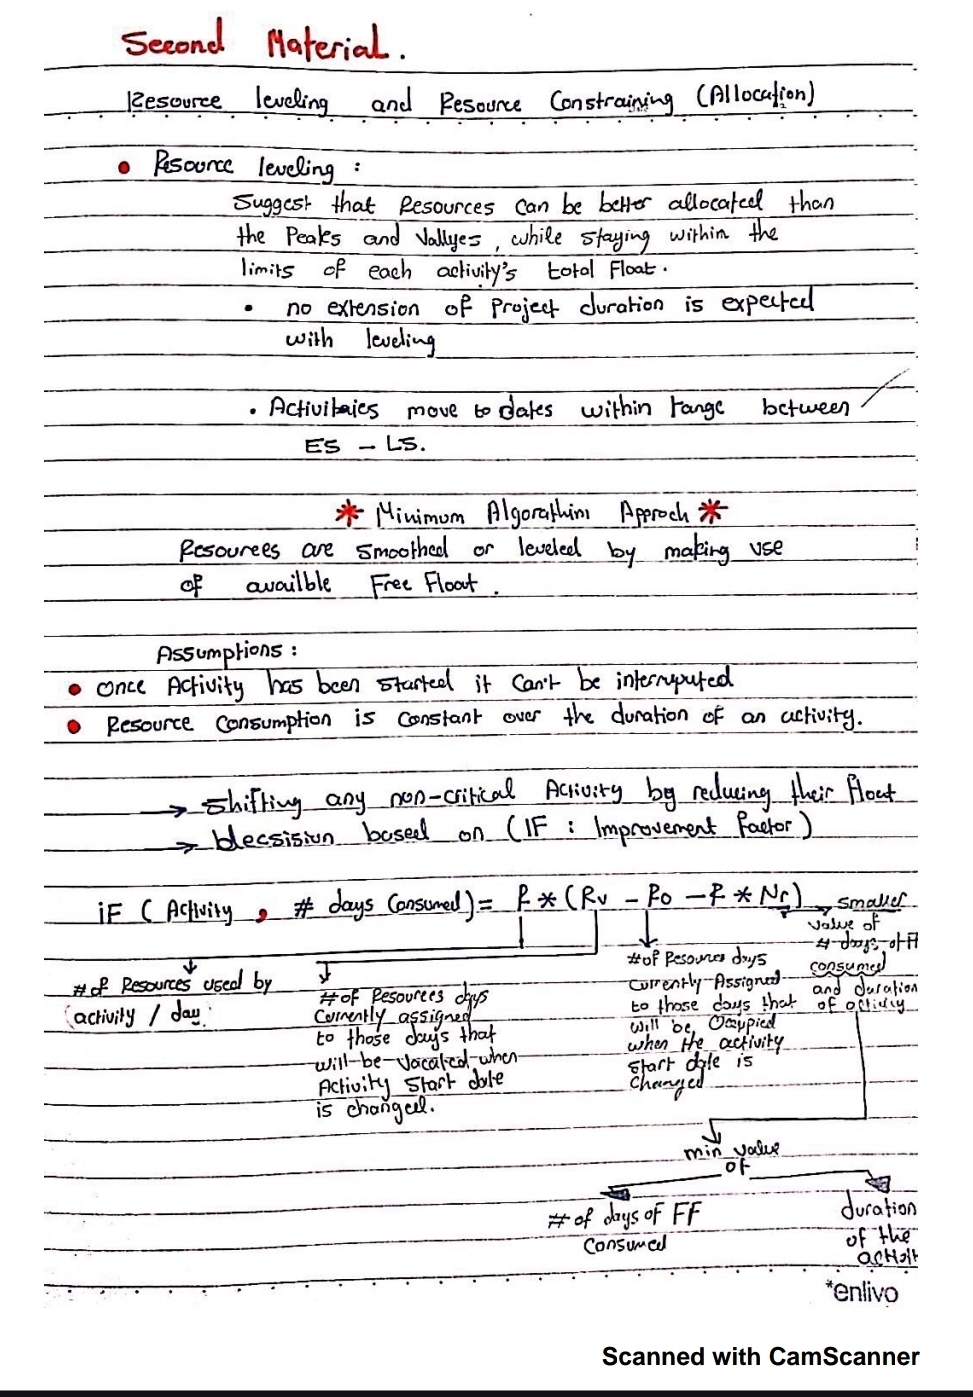 Second Material.
Resource leveling and Resource Constraining (Allocation)
• Resource leveling :
Suggest that Resources can be better allocated than
the Peaks and Vallyes, while staying within the
limits of each activity's total Float.
• no extension of Project duration is expected
with leveling
• Activitaies move to dates within range between
ES - LS.
* Minimum Algorathim Approch *
Resources are smoothed or leveled by making use
of availble Free Float.
Assumptions :
• once Activity has been started it can't be interruputed
• Resource Consumption is constant over the duration of an activity.
→ Shifting any non-critical Activity by reducing their float
→ Decsision based on (IF : Improvement factor)
iF ( Activity , # days Consumed) = R * (Rv - Ro - R * Nr)
smaller
value of
# days of FF
consumed
and duration
of activity
# of Resources used by
(activity / day)
# of Resources days
Currently assigned
to those days that
will be Vacated when
Activity start date
is changed.
# of Resources days
Currently Assigned
to those days that
will be Occupied
when the activity
start date is
changed
min value
of
# of days of FF
Consumed
duration
of the
activit
*enlivo
Scanned with CamScanner